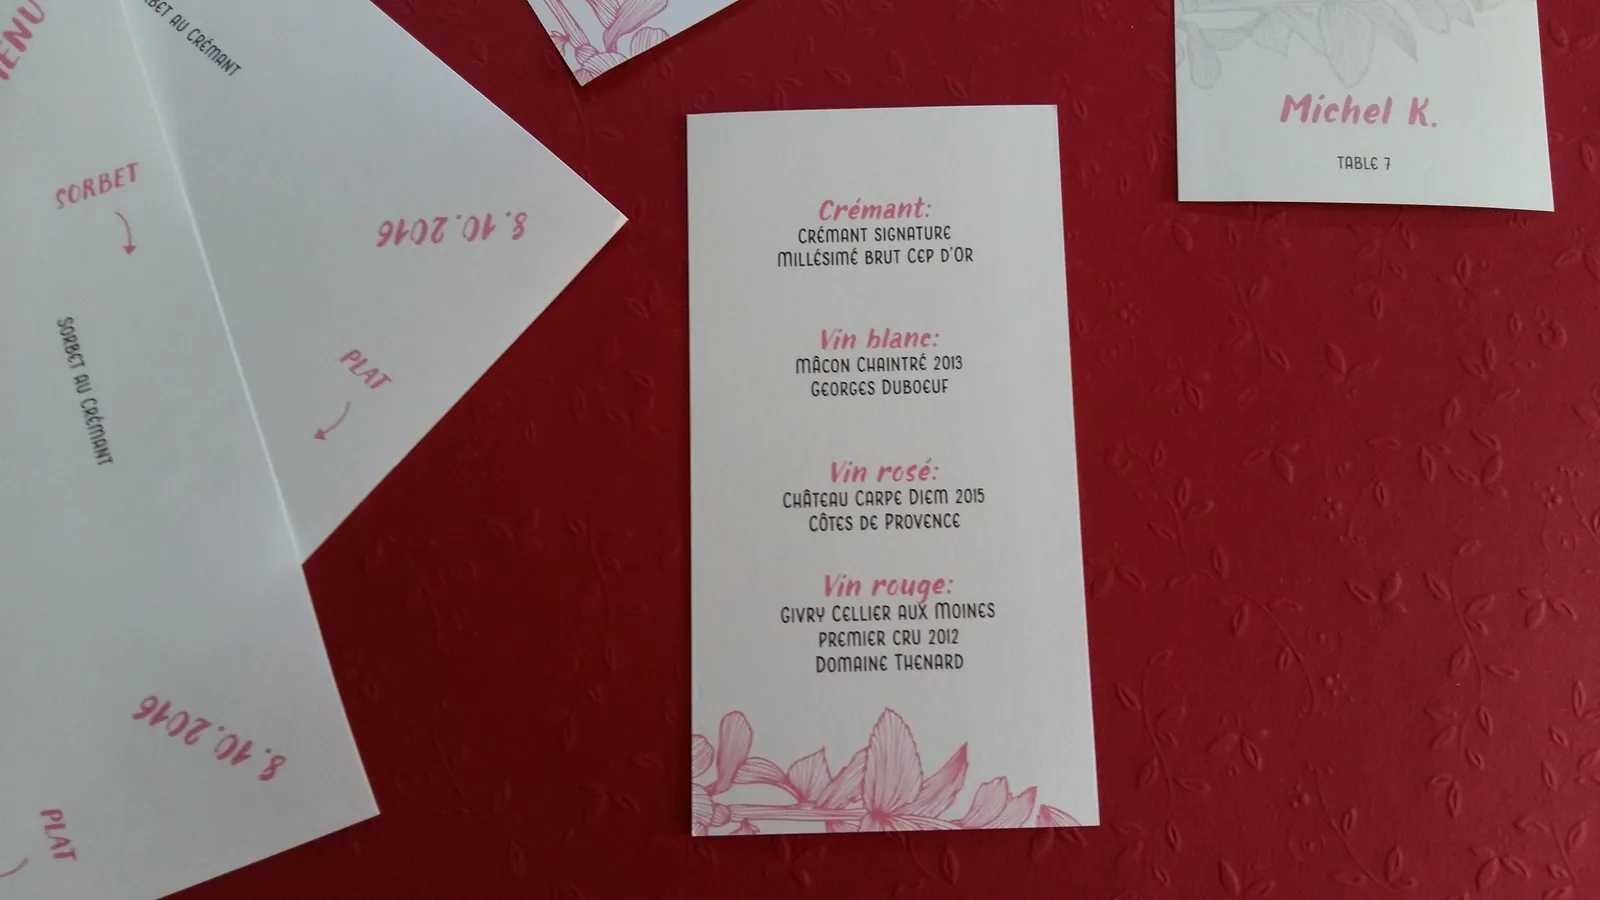 MENU
SORBET AU CRÉMANT
SORBET
8.10.2016
PLAT
SORBET AU CRÉMANT
8.10.2016
PLAT
Crémant:
CRÉMANT SIGNATURE
MILLÉSIMÉ BRUT CEP D'OR
Vin blanc:
MÂCON CHAINTRÉ 2013
GEORGES DUBOEUF
Vin rosé:
CHÂTEAU CARPE DIEM 2015
CÔTES DE PROVENCE
Vin rouge:
GIVRY CELLIER AUX MOINES
PREMIER CRU 2012
DOMAINE THENARD
Michel K.
TABLE 7